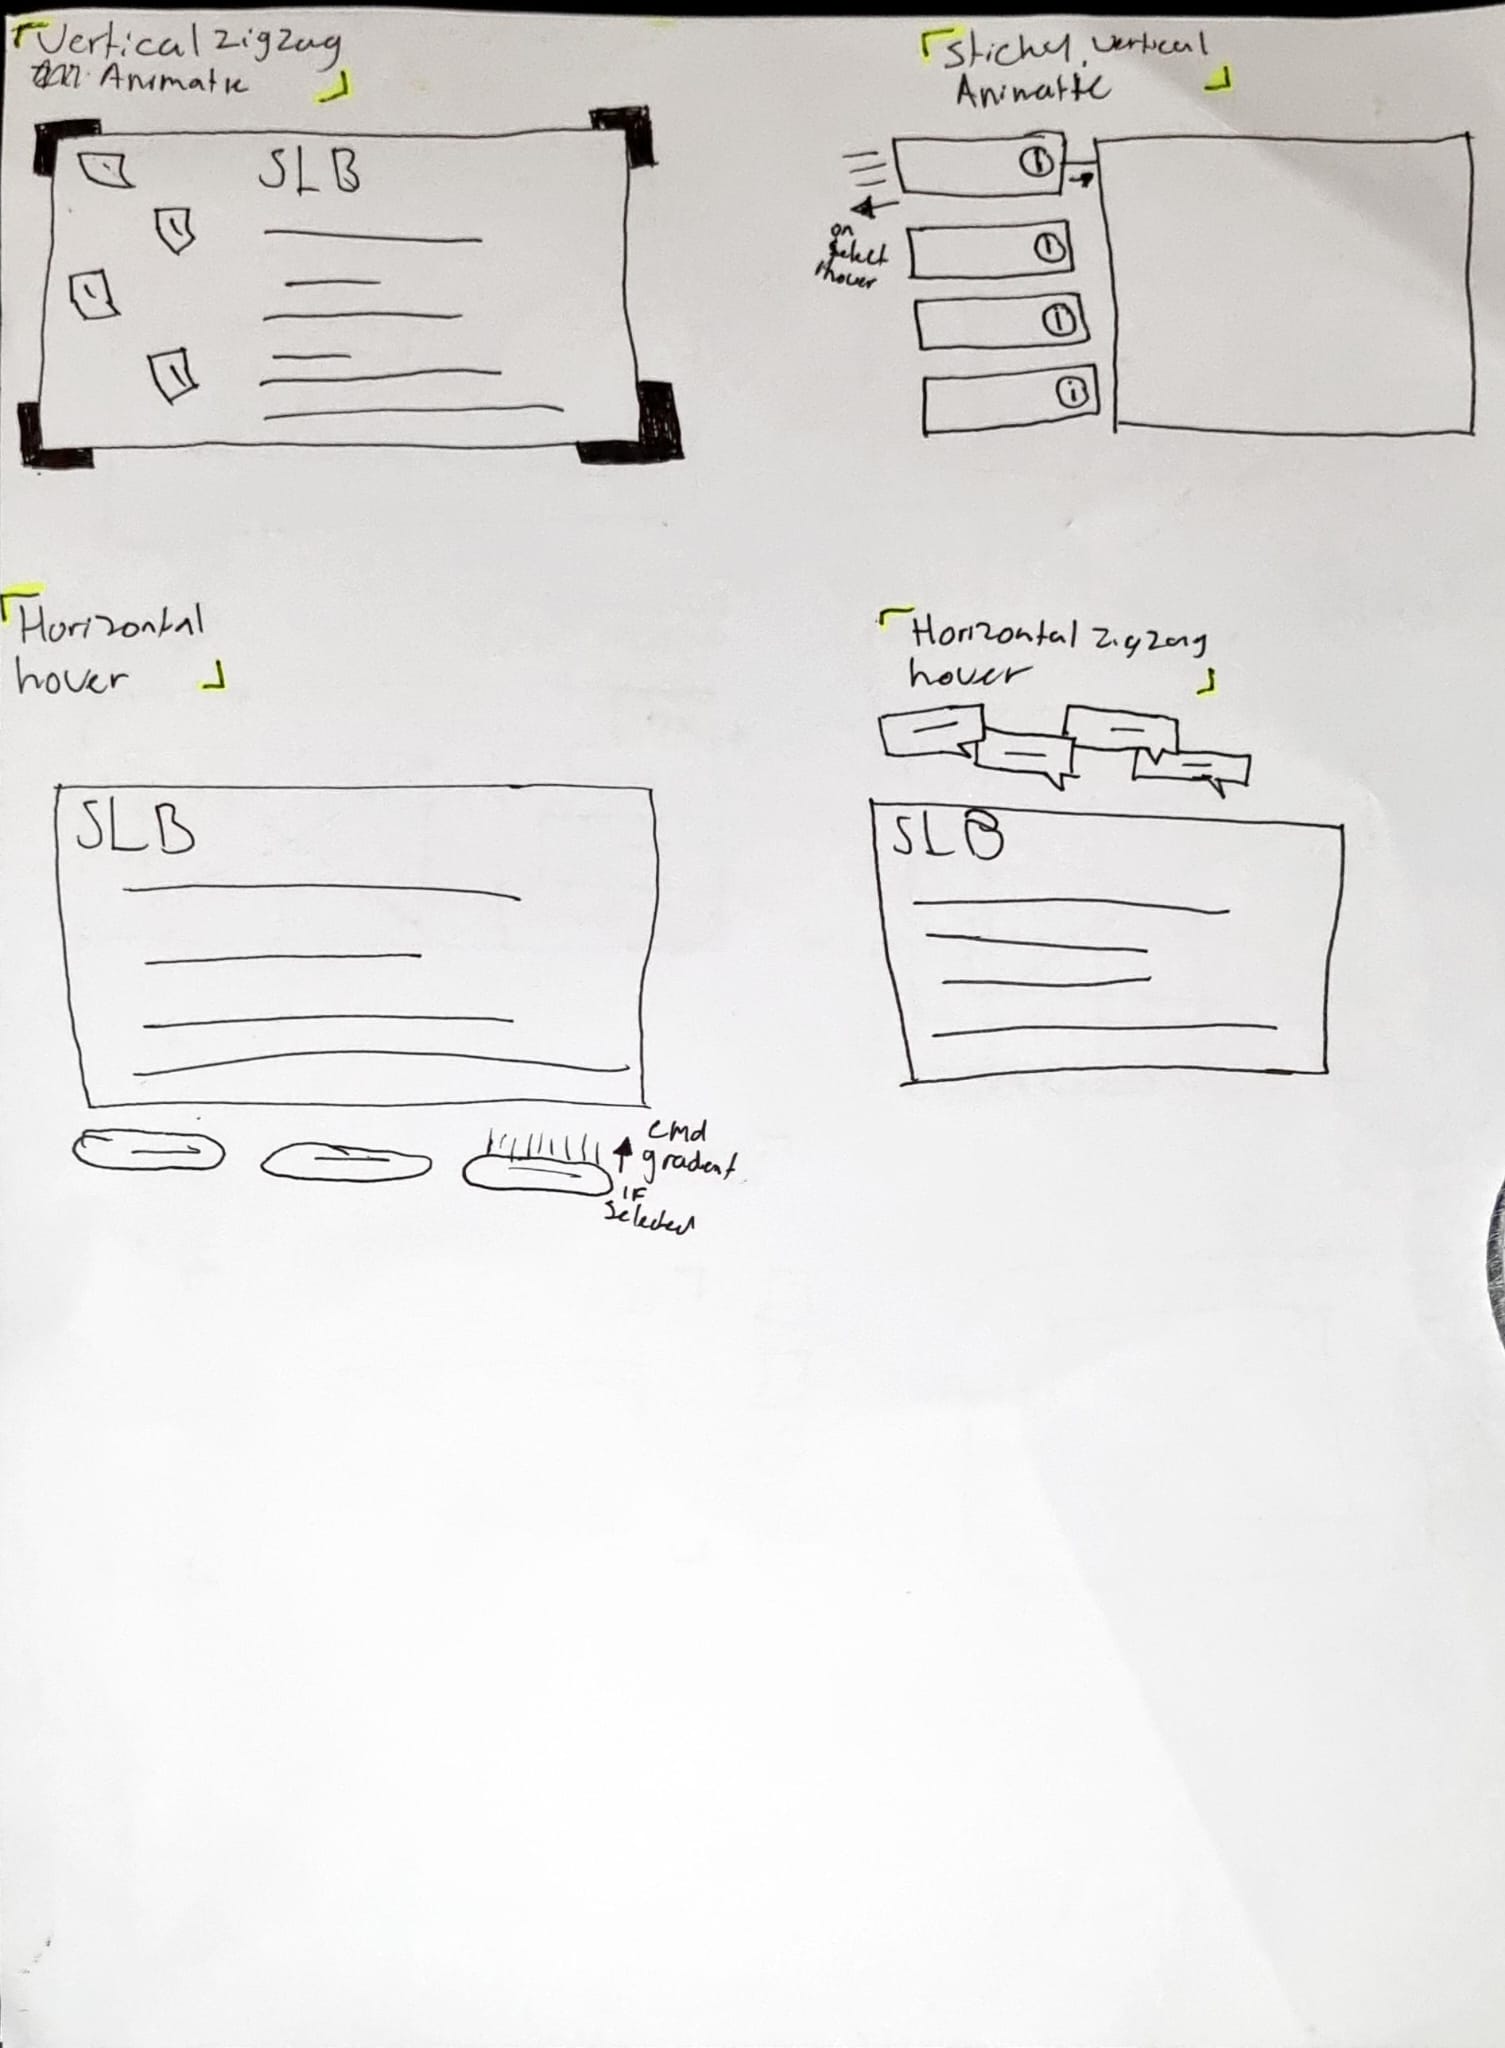 Vertical zigzag
Animatic
SLB
Sticky, vertical
Animatic
on
select
hover
i
i
i
i
Horizontal
hover
SLB
gradient
if
selected
Horizontal zigzag
hover
SLB